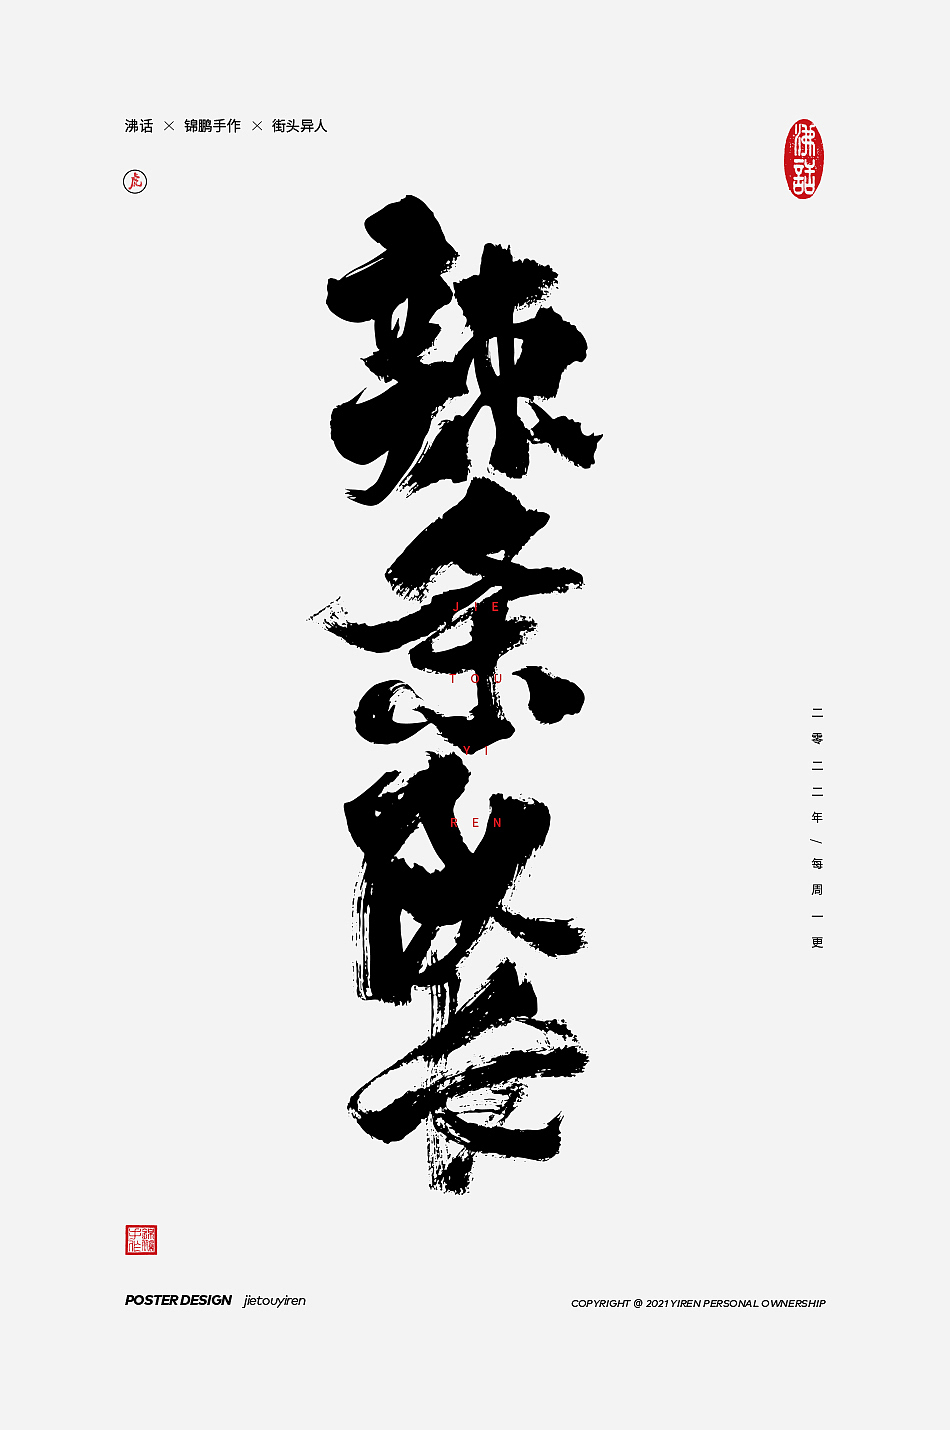 沸话 × 锦鹏手作 × 街头异人
虎
沸話
辣条队长
JIE
TOU
YI
REN
二零二二年/每周一更
POSTER DESIGN jietouyiren
COPYRIGHT @ 2021 YIREN PERSONAL OWNERSHIP